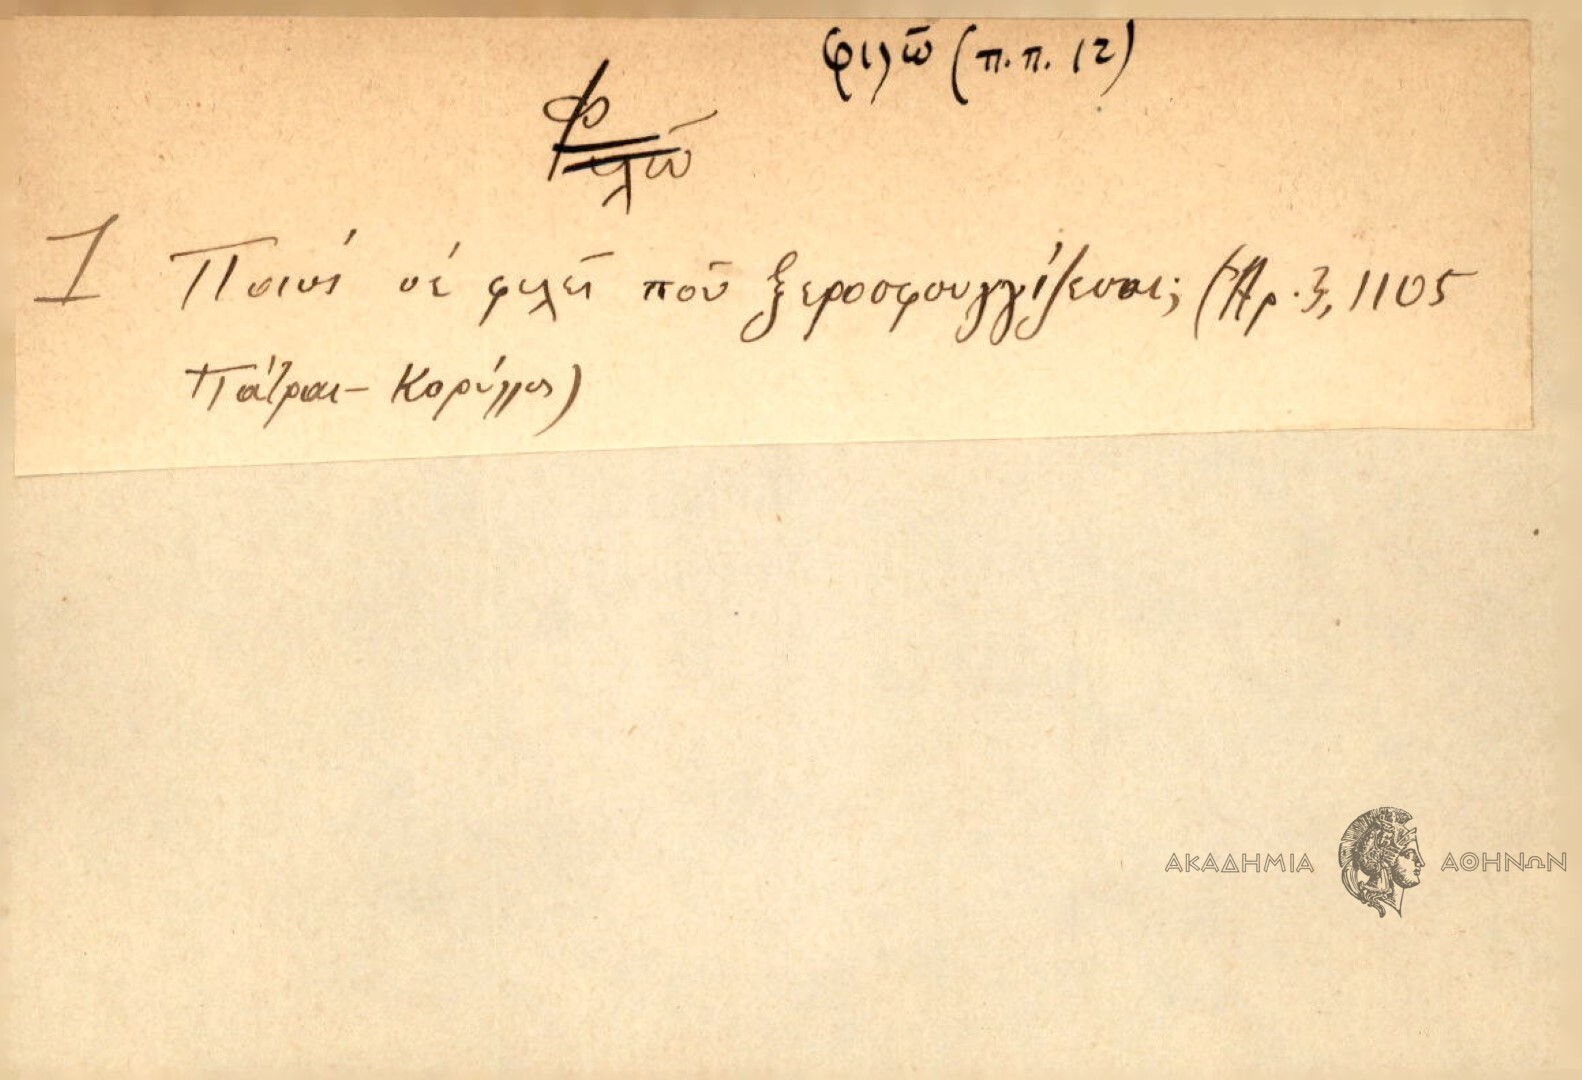 φιλῶ (π.π. 12)
Φιλῶ
1 Ποιός σέ φιλεῖ ποῦ ξεροσφουγγίζεσαι; (Ἀρ. 3, 1105
Πάτραι - Κορύλλος)
ΑΚΑΔΗΜΙΑ ΑΘΗΝΩΝ